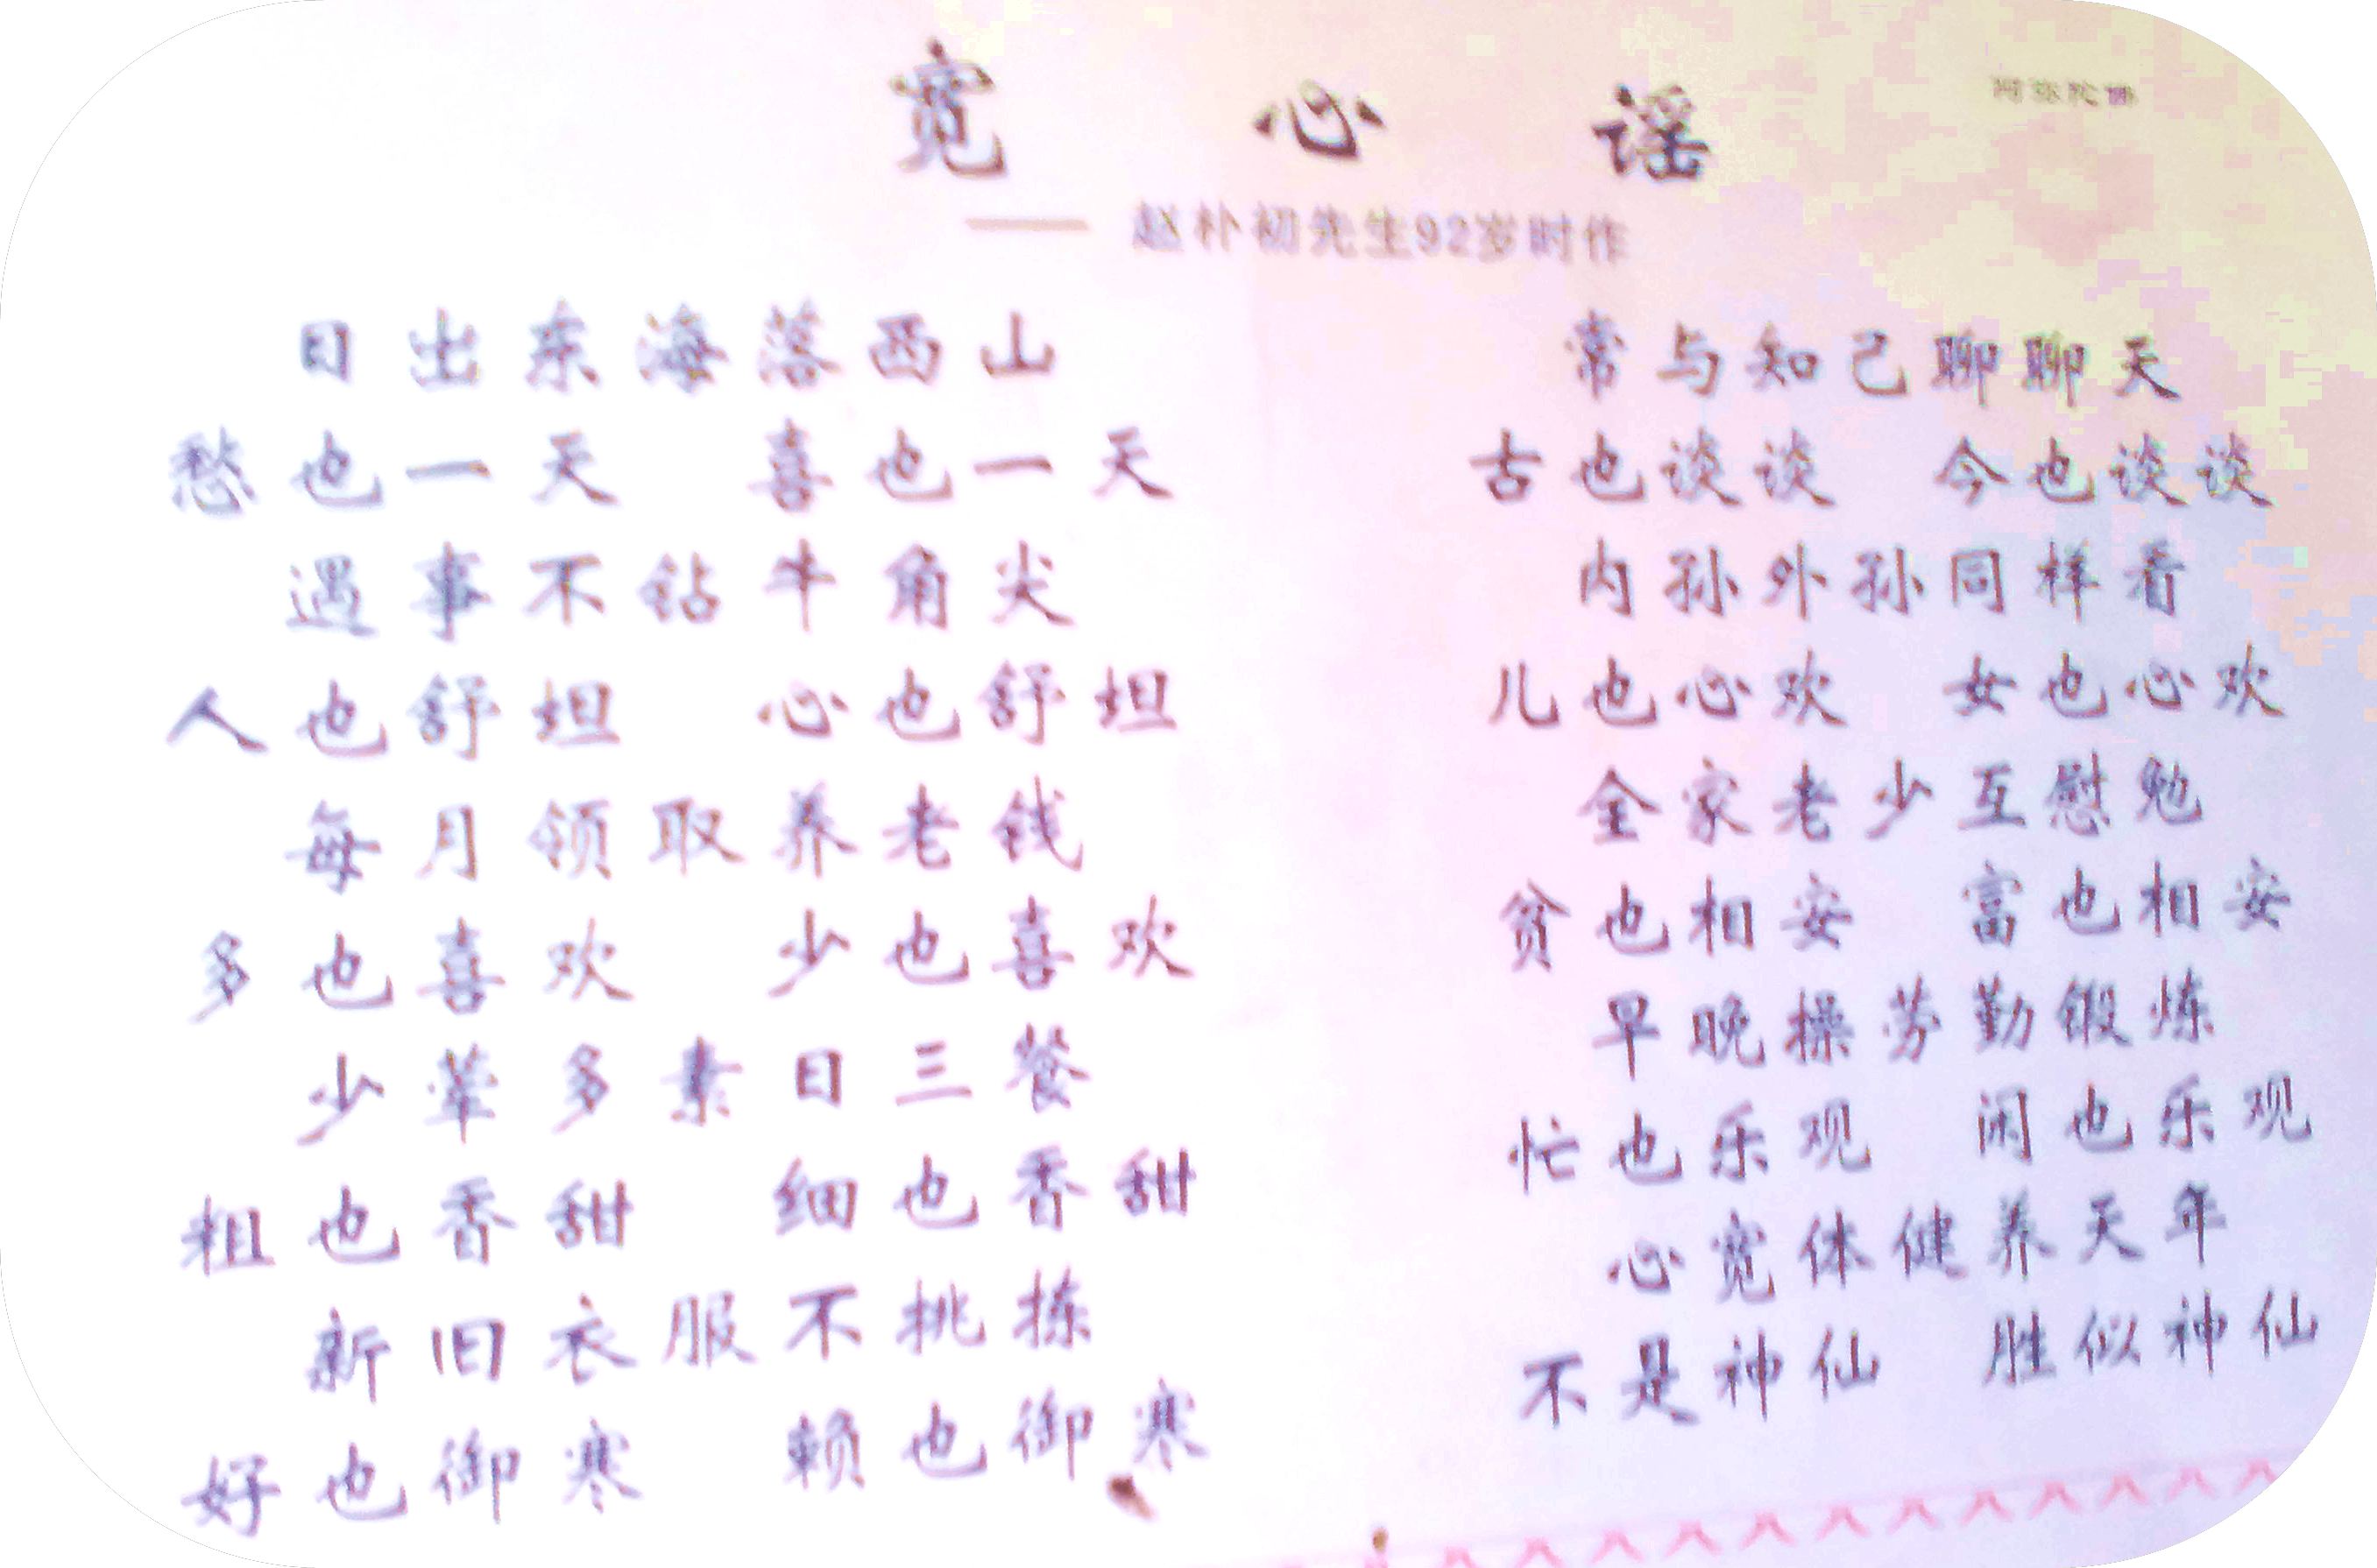 宽心谣
阿弥陀佛
—— 赵朴初先生92岁时作
日出东海落西山
愁也一天 喜也一天
遇事不钻牛角尖
人也舒坦 心也舒坦
每月领取养老钱
多也喜欢 少也喜欢
少荤多素日三餐
粗也香甜 细也香甜
新旧衣服不挑拣
好也御寒 赖也御寒
常与知己聊聊天
古也谈谈 今也谈谈
内孙外孙同样看
儿也心欢 女也心欢
全家老少互慰勉
贫也相安 富也相安
早晚操劳勤锻炼
忙也乐观 闲也乐观
心宽体健养天年
不是神仙 胜似神仙